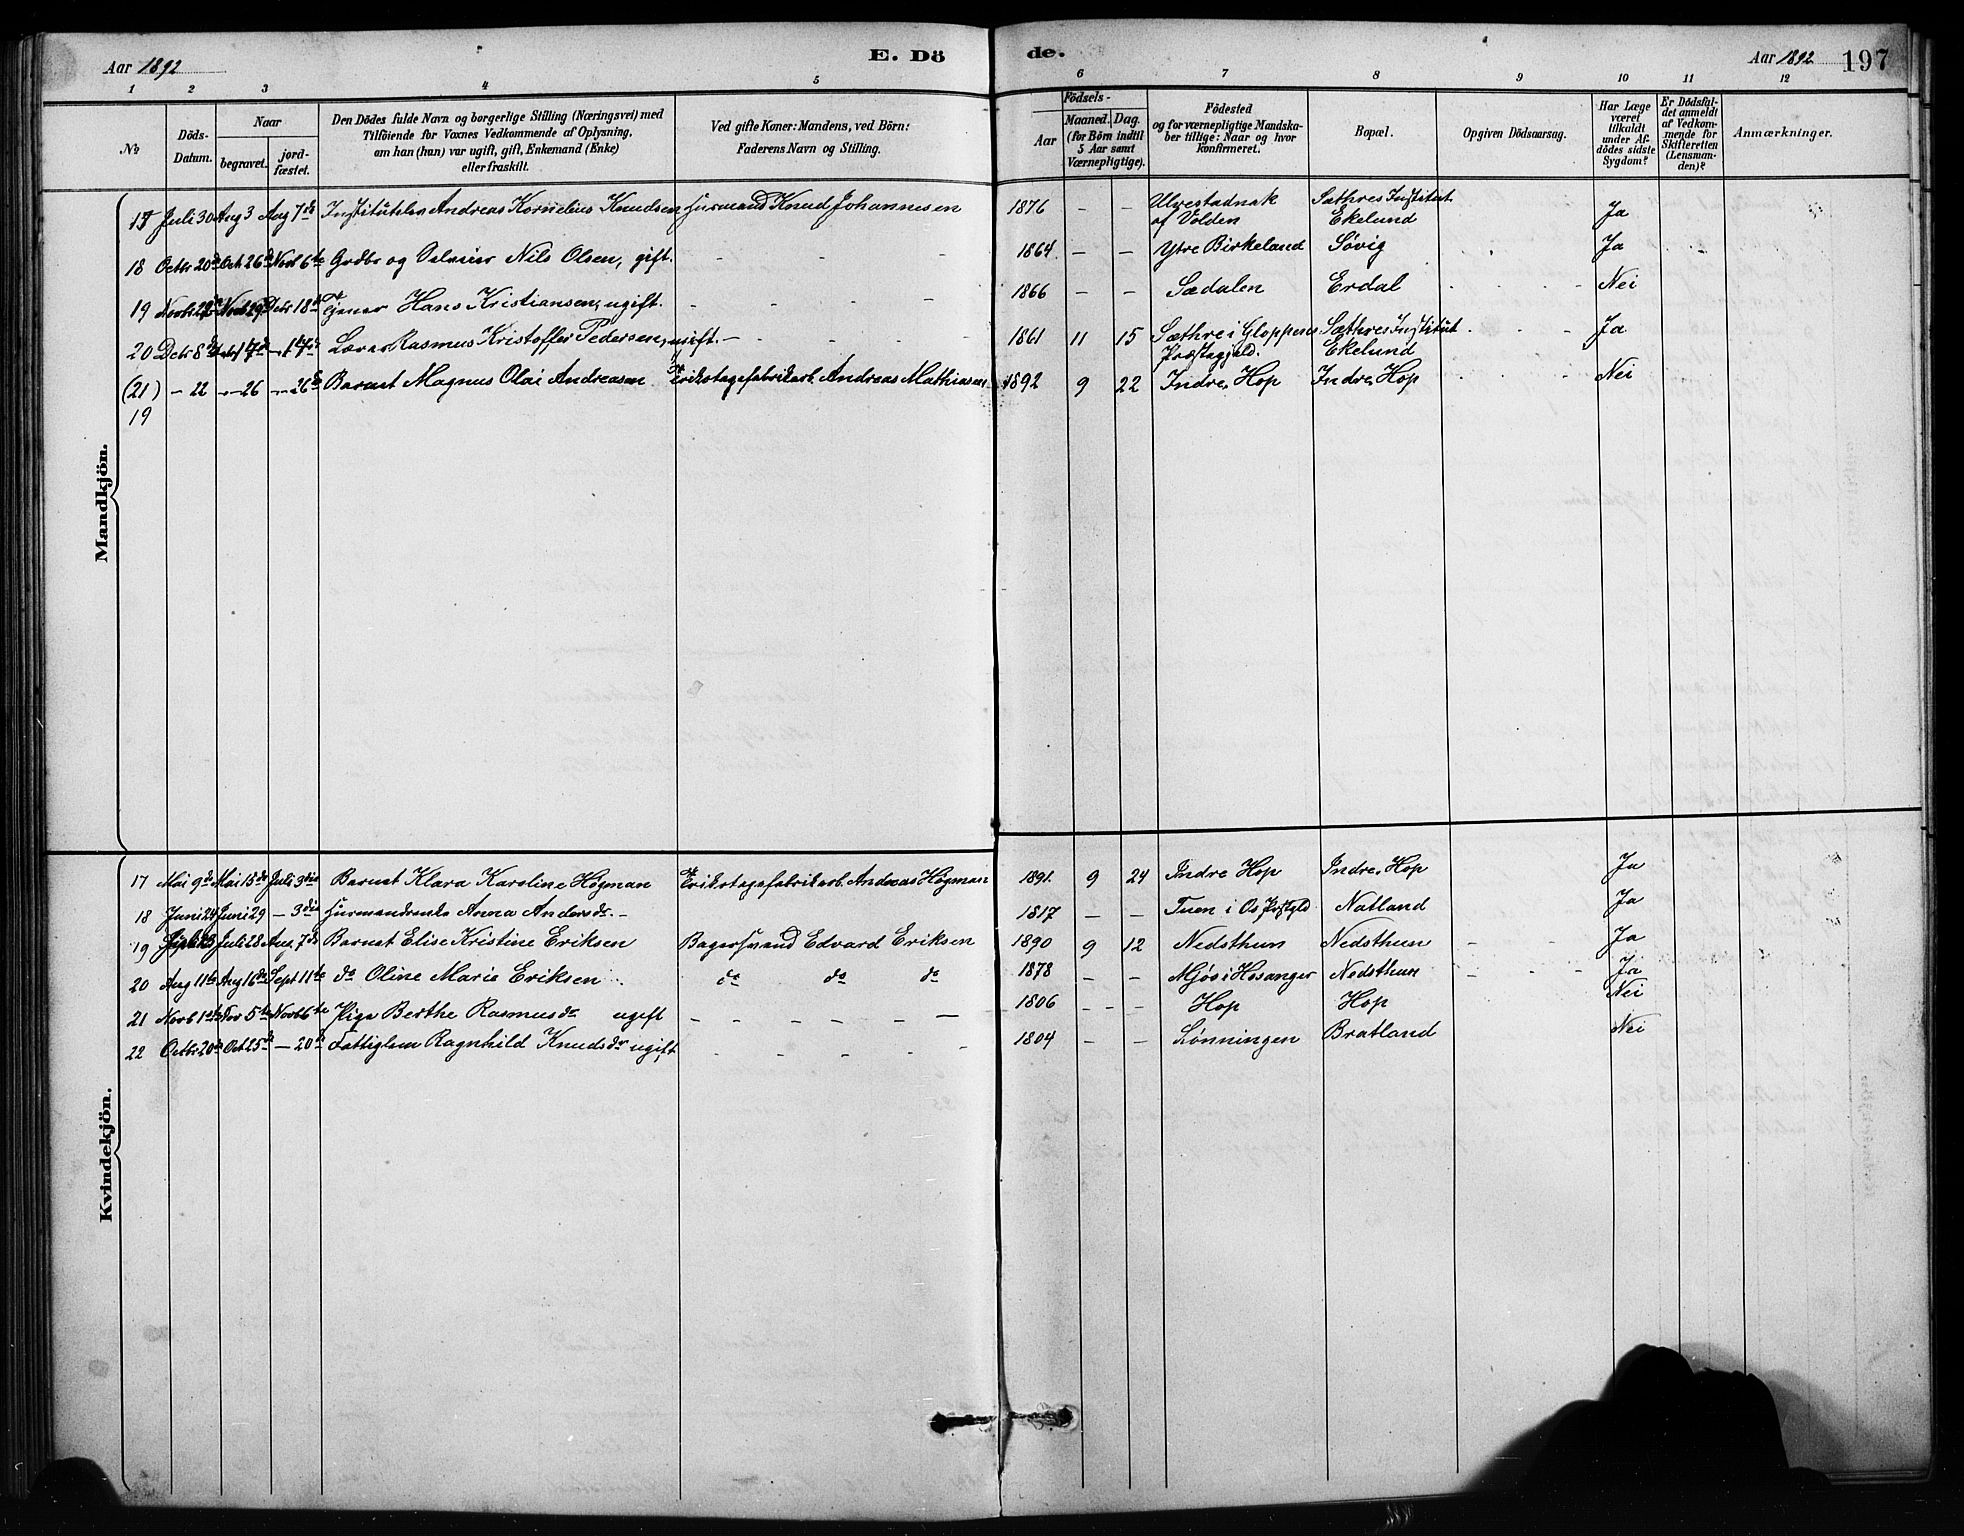 Aar 1892 E. Dö de. Aar 1892 197
1 2 3 4 5 6 7 8 9 10 11 12
No
Döds-Datum.
Naar
begravet.
jord-fæstet.
Den Dödes fulde Navn og borgerlige Stilling (Næringsvei) med
Tilföiende for Voxnes Vedkommende af Oplysning,
om han (hun) var ugift, gift, Enkemand (Enke)
eller fraskilt.
Ved gifte Koner: Mandens, ved Börn:
Faderens Navn og Stilling.
Födsels-
Aar
Maaned. Dag.
(for Börn indtil
5 Aar samt
Værnepligtige).
Födested
og for værnepligtige Mandska-
ber tillige: Naar og hvor
konfirmeret.
Bopæl.
Opgiven Dödsaarsag.
Har Læge
været
tilkaldt
under Af-
dödes sidste
Sygdom?
Er Dödsfal-
det anmeldt
af Vedkom-
mende for
Skifteretten
(Lensman-
den)?
Anmærkninger.
Mandkjön.
17 Juli 30 Aug 3 Aug 7de Andreas Kornelius Knudsen Husmand Knud Johannesen 1876 - - Ulvestadnak af Volden Sæthres Institut Ekelund Ja
18 Octbr 20de Oct 26de Novb 6te Grdbr og Nils Olsen, gift. - - - 1864 - - Ytre Birkeland Søvig Ja
19 Decbr 18de Tjener Hans Kristiansen, ugift. - - - - 1866 - - Sædalen Erdal Nei
20 Decbr 8de Lærer Rasmus Kristoffer Pedersen, ugift. - - - - 1861 11 15 Sæthre i Gloppens Præstegjeld. Sæthres Institut Ekelund Ja
(21) - 22 - 26 - 26de Barnet Magnus Olai Andreasen Trikotagefabrikarb. Andreas Mathiasen 1892 9 22 Indre Hop Indre Hop Nei
19
Kvindekjön.
17 Mai 9de Mai 15de Juli 3die Barnet Klara Karoline Högman Trikotagefabrikarb. Andreas Högman 1891. 9 24 Indre Hop Indre Hop Ja
18 Juni 24 Juni 29 - 3die Husmandsenke Anna Andersdr. - 1817 - - Tuen i Os Natland Ja
19 Juli 28 Aug 7de Barnet Elise Kristine Eriksen Bagersvend Edvard Eriksen 1890 9 12 Nedsthun Nedsthun Ja
20 Aug 11te Aug 16de Sept 11te do Oline Marie Eriksen do do do 1878 - - Mjøs i Hosanger Nedsthun Ja
21 Novb 1ste Nov 5te Novb 6te Pige Berthe Rasmusdr ugift - - - - - - 1806 - - - Hop Hop Nei
22 Octbr 20de Oct 25de - 20de Fattiglem Ragnhild Knudsdr ugift - - - - - 1804 - - Lønningen Bratland Nei